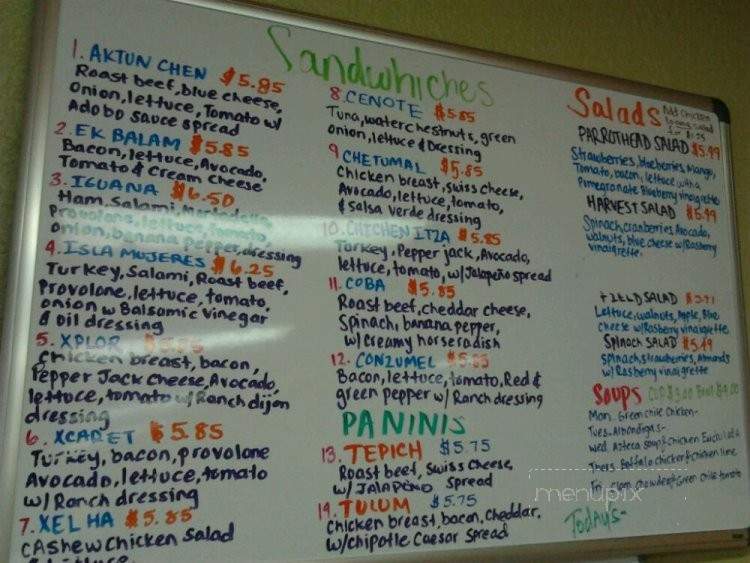 Sandwhiches
1. AKTUN CHEN $5.85
Roast beef, blue cheese,
Onion, lettuce, Tomato w/
Adobo sauce spread
2. EK BALAM $5.85
Bacon, lettuce, Avocado,
Tomato & Cream Cheese
3. IGUANA $6.50
Ham, Salami,
Provolone, lettuce, tomato,
onion, banana pepper, dressing
4. ISLA MUJERES $6.25
Turkey, Salami, Roast beef,
Provolone, lettuce, tomato,
onion w Balsamic Vinegar
& Oil dressing
5. XPLOR
Chicken breast, bacon,
Pepper Jack cheese, Avocado,
lettuce, tomato w/ Ranch dijon
dressing
6. XCARET $5.85
Turkey, bacon, provolone
Avocado, lettuce, tomato
w/ Ranch dressing
7. XEL HA $5.85
CAshew Chicken Salad
& lettuce
8. CENOTE $5.85
Tuna, waterchestnuts, green
onion, lettuce & Dressing
9 CHETUMAL $5.85
Chicken breast, swiss cheese,
Avocado, lettuce, tomato,
& salsa verde dressing
10. CHICHEN ITZA $5.85
Turkey, Pepper jack, Avocado,
lettuce, tomato, w/ Jalapeño spread
11. COBA $5.85
Roast beef, cheddar cheese,
Spinach, banana pepper,
w/ creamy horseradish
12. CONZUMEL $5.85
Bacon, lettuce, tomato, Red &
green pepper w/ Ranch dressing
PANINIS
13. TEPICH $5.75
Roast beef, Swiss cheese,
w/ JALAPEÑO spread
14. TULUM $5.75
Chicken breast, bacon, Cheddar,
w/chipotle Caesar Spread
Salads
Add Chicken
to any salad
for
PARROTHEAD SALAD $5.99
Strawberries, blueberries, Mango,
Tomato, bacon, lettuce with a
Pomegranate Blueberry vinaigrette
HARVEST SALAD $5.99
Spinach, cranberries, Avocado,
walnuts, blue cheese w/ Rasberry
vinaigrette
FIELD SALAD
Lettuce, walnuts, Apple, Blue
cheese w/ Rasberry vinaigrette
Spinach SALAD $5.49
spinach, strawberries, Almonds
w/ Rasberry vinaigrette
Soups CUP $3.00 Bowl $4.00
Mon. Green chile Chicken-
Tues. Albondigas-
Wed. Azteca soup & Chicken Enchilada
Thurs. Buffalo chicken & chicken lime
Fri. Clam chowder & Green chile tomato
Todays-
menupix